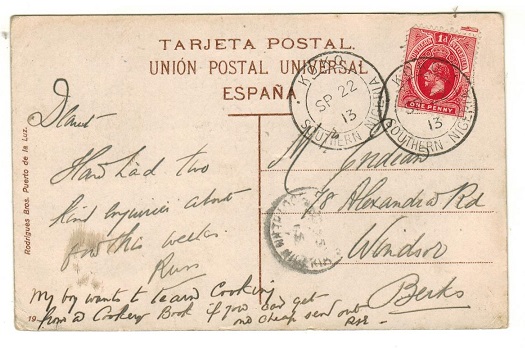 TARJETA POSTAL
UNIÓN POSTAL UNIVERSAL
ESPAÑA
1d
SOUTHERN NIGERIA
ONE PENNY
KOKO
SP 22
13
SOUTHERN NIGERIA
KO
13
SOUTHERN NIGERIA
Rodrigues Bros. Puerto de la Luz.
Have had two
kind enquiries about
for this weeks.
My boy wants to learn Cooking
from a Cookery Book if you can get
one cheap send out
78 Alexandra Rd
Windsor
Berks
NIGERIA
19